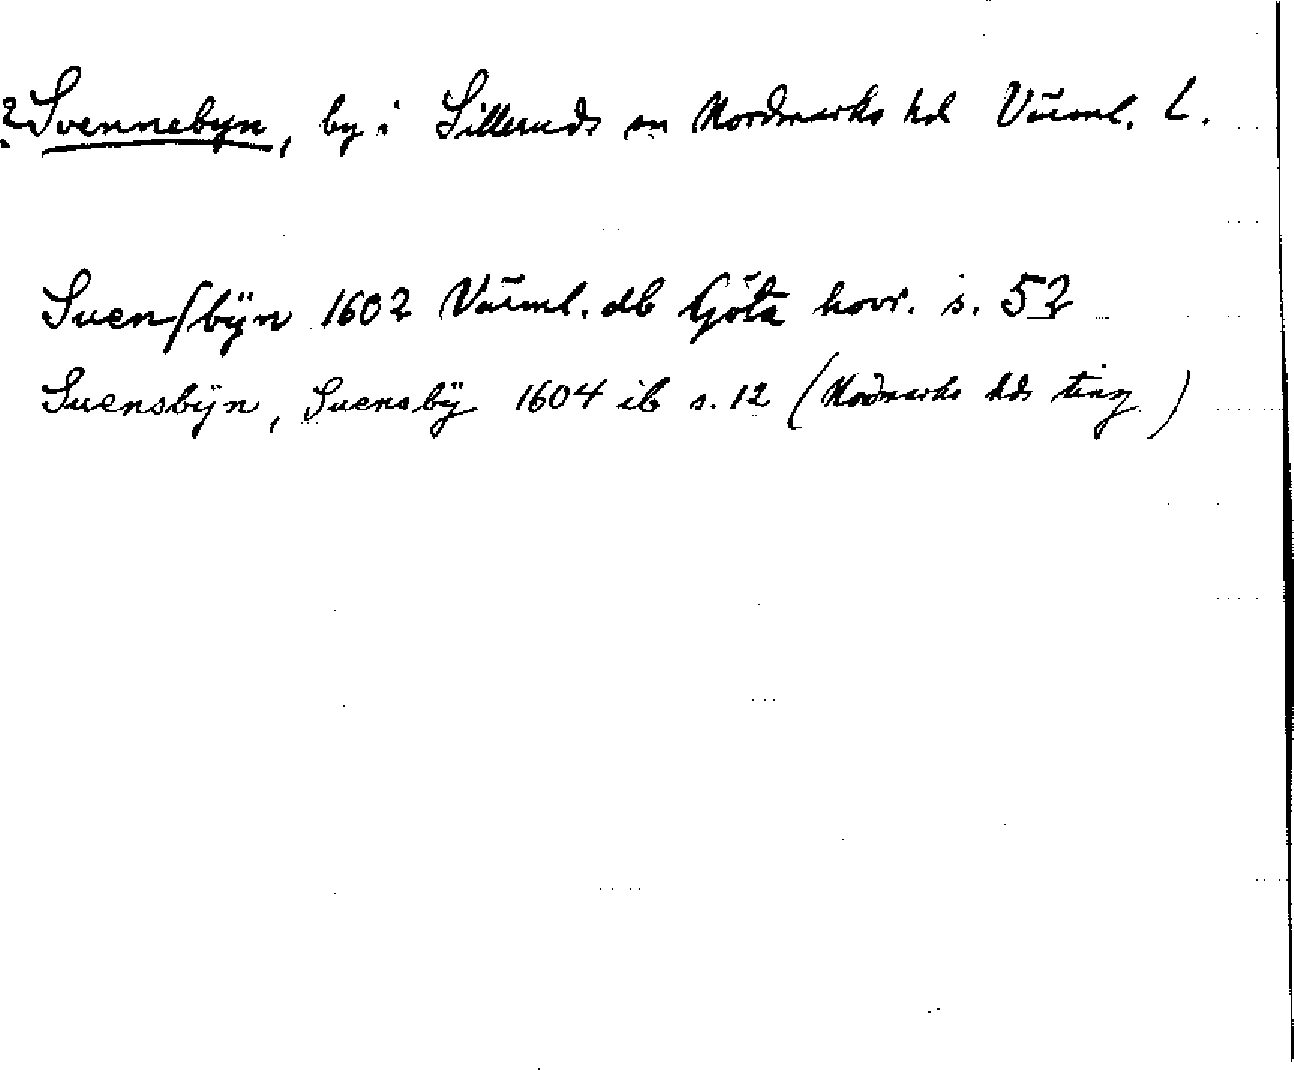 ? Svennebyn, by i Silleruds sn Nordmarks hd Värml. L.
Suenſbÿn 1602 Värml. db Göta hovr. s. 52
Suensbÿn, Suensbÿ 1604 ib s. 12 (Nordmarks hds ting)